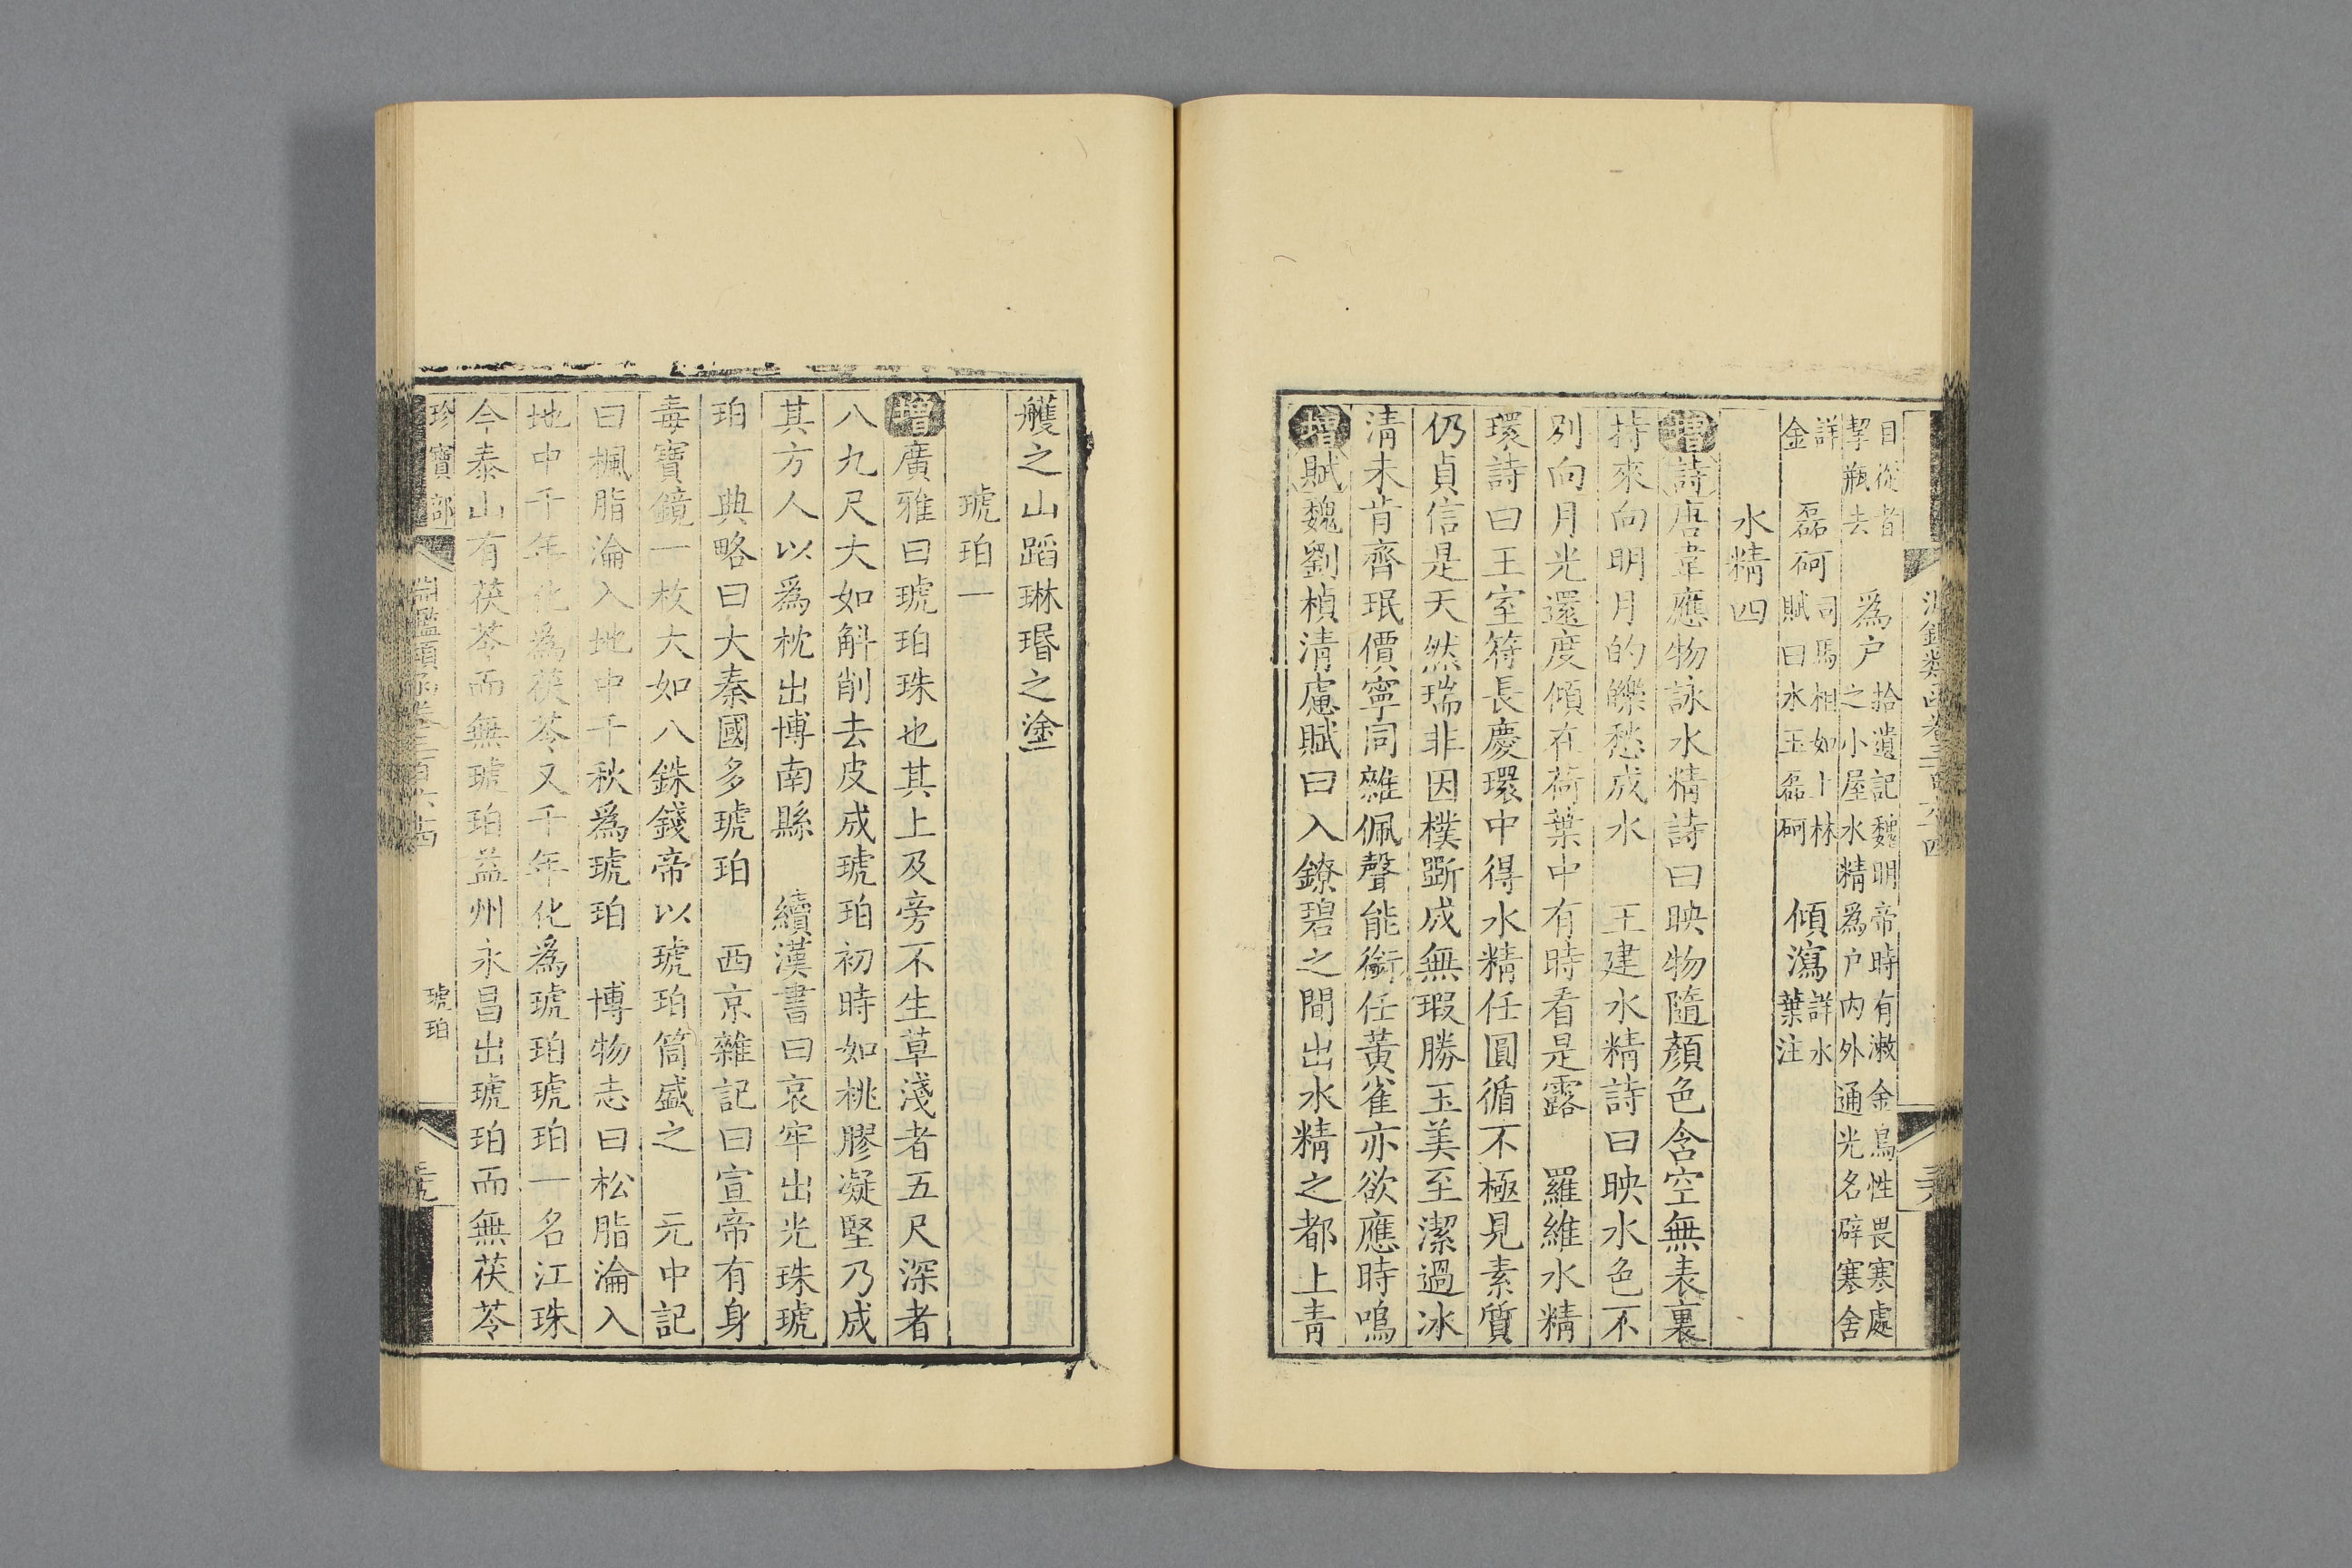 淵鑑類函卷三百六十四
目從者 拾遺記魏明帝時有漱金鳥性畏寒處
挈瓶去 爲户 之小屋水精爲户内外通光名辟寒舍
詳 司馬相如上林 詳水
金 磊砢 賦曰水玉磊砢 傾瀉 葉注
水精四
增詩唐韋應物詠水精詩曰映物隨顏色含空無表裏
持來向明月的皪愁成水 王建水精詩曰映水色不
別向月光還度傾在荷葉中有時看是露 羅維水精
環詩曰王室符長慶環中得水精任圓循不極見素質
仍貞信是天然瑞非因樸斲成無瑕勝玉美至潔過冰
清未肯齊珉價寧同雜佩聲能銜任黃雀亦欲應時鳴
增賦魏劉楨清慮賦曰入鐐碧之間出水精之都上青
雘之山蹈琳瑉之塗
琥珀一
增廣雅曰琥珀珠也其上及旁不生草淺者五尺深者
八九尺大如斛削去皮成琥珀初時如桃膠凝堅乃成
其方人以爲枕出博南縣 續漢書曰哀牢出光珠琥
珀 典略曰大秦國多琥珀 西京雜記曰宣帝有身
毒寶鏡一枚大如八銖錢帝以琥珀筒盛之 元中記
曰楓脂淪入地中千秋爲琥珀 博物志曰松脂淪入
地中千年化爲茯苓又千年化爲琥珀琥珀一名江珠
今泰山有茯苓而無琥珀益州永昌出琥珀而無茯苓
珍寶部 淵鑑類函卷三百六十四 琥珀